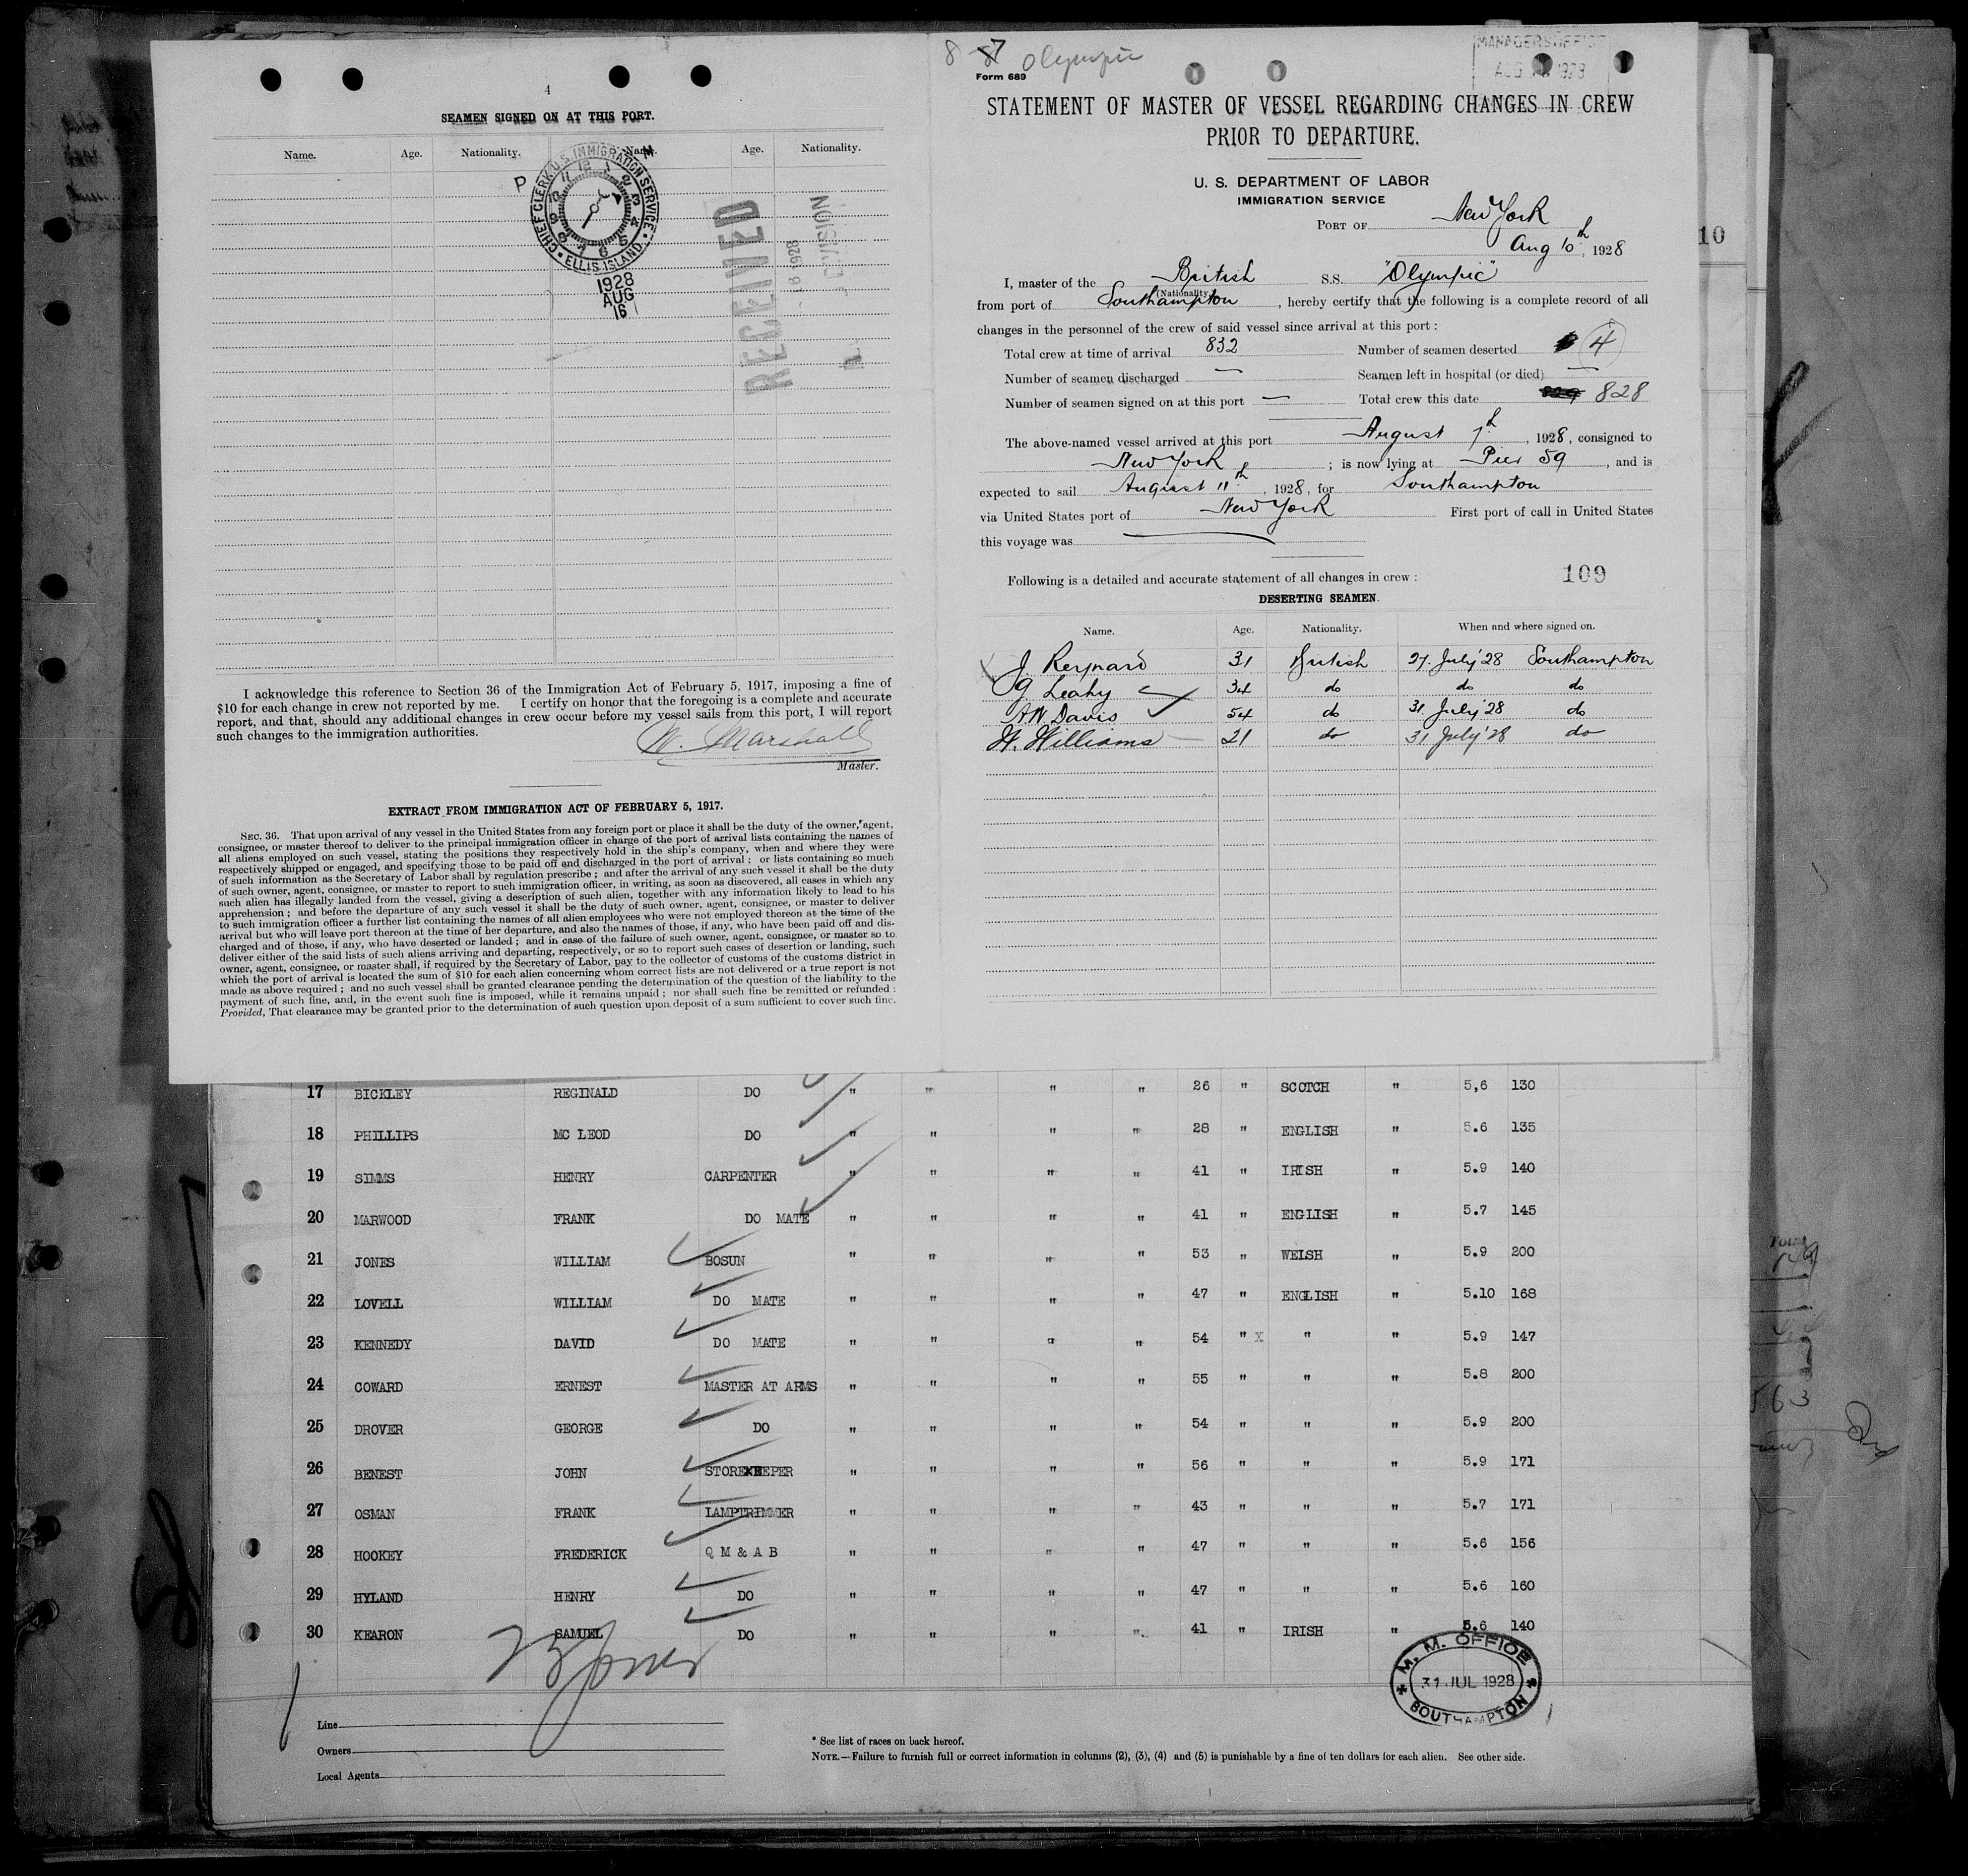 4
SEAMEN SIGNED ON AT THIS PORT.
Name. Age. Nationality. Name. Age. Nationality.
P M
CHIEF CLERK U.S. IMMIGRATION SERVICE
ELLIS ISLAND
1928
AUG
16
RECEIVED
DIVISION
I acknowledge this reference to Section 36 of the Immigration Act of February 5, 1917, imposing a fine of
$10 for each change in crew not reported by me. I certify on honor that the foregoing is a complete and accurate
report, and that, should any additional changes in crew occur before my vessel sails from this port, I will report
such changes to the immigration authorities.
W. Marshall
Master.
EXTRACT FROM IMMIGRATION ACT OF FEBRUARY 5, 1917.
SEC. 36. That upon arrival of any vessel in the United States from any foreign port or place it shall be the duty of the owner, agent,
consignee, or master thereof to deliver to the principal immigration officer in charge of the port of arrival lists containing the names of
all aliens employed on such vessel, stating the positions they respectively hold in the ship's company, when and where they were
respectively shipped or engaged, and specifying those to be paid off and discharged in the port of arrival; or lists containing so much
of such information as the Secretary of Labor shall by regulation prescribe; and after the arrival of any such vessel it shall be the duty
of such owner, agent, consignee, or master to report to such immigration officer, in writing, as soon as discovered, all cases in which any
such alien has illegally landed from the vessel, giving a description of such alien, together with any information likely to lead to his
apprehension; and before the departure of any such vessel it shall be the duty of such owner, agent, consignee, or master to deliver
to such immigration officer a further list containing the names of all alien employees who were not employed thereon at the time of the
arrival but who will leave port thereon at the time of her departure, and also the names of those, if any, who have been paid off and dis-
charged and of those, if any, who have deserted or landed; and in case of the failure of such owner, agent, consignee, or master so to
deliver either of the said lists of such aliens arriving and departing, respectively, or so to report such cases of desertion or landing, such
owner, agent, consignee, or master shall, if required by the Secretary of Labor, pay to the collector of customs of the customs district in
which the port of arrival is located the sum of $10 for each alien concerning whom correct lists are not delivered or a true report is not
made as above required; and no such vessel shall be granted clearance pending the determination of the question of the liability to the
payment of such fine, and, in the event such fine is imposed, while it remains unpaid; nor shall such fine be remitted or refunded:
Provided, That clearance may be granted prior to the determination of such question upon deposit of a sum sufficient to cover such fine.
8-7 Olympic
Form 689
MANAGERS OFFICE
AUG 1928
STATEMENT OF MASTER OF VESSEL REGARDING CHANGES IN CREW
PRIOR TO DEPARTURE.
U. S. DEPARTMENT OF LABOR
IMMIGRATION SERVICE
PORT OF New York
Aug 10th, 1928
I, master of the British S.S. "Olympic"
(Nationality)
from port of Southampton, hereby certify that the following is a complete record of all
changes in the personnel of the crew of said vessel since arrival at this port:
Total crew at time of arrival 832 Number of seamen deserted 4
Number of seamen discharged — Seamen left in hospital (or died) —
Number of seamen signed on at this port — Total crew this date 829 828
The above-named vessel arrived at this port August 7th, 1928, consigned to
New York; is now lying at Pier 59, and is
expected to sail August 11th, 1928, for Southampton
via United States port of New York First port of call in United States
this voyage was
Following is a detailed and accurate statement of all changes in crew: 109
DESERTING SEAMEN.
Name. Age. Nationality. When and where signed on.
J. Reynard 31 British 27. July '28 Southampton
G Leahy 34 do do do
A W Davis 54 do 31 July '28 do
W. Williams 21 do 31 July '28 do
10
17 BICKLEY REGINALD DO " " " " 26 " SCOTCH " 5,6 130
18 PHILLIPS MC LEOD DO " " " " 28 " ENGLISH " 5.6 135
19 SIMMS HENRY CARPENTER " " " " 41 " IRISH " 5.9 140
20 MARWOOD FRANK DO MATE " " " " 41 " ENGLISH " 5.7 145
21 JONES WILLIAM BOSUN " " " " 53 " WELSH " 5.9 200
22 LOVELL WILLIAM DO MATE " " " " 47 " ENGLISH " 5.10 168
23 KENNEDY DAVID DO MATE " " " " 54 " X " " 5.9 147
24 COWARD ERNEST MASTER AT ARMS " " " " 55 " " " 5.8 200
25 DROVER GEORGE DO " " " " 54 " " " 5.9 200
26 BENEST JOHN STOREKEEPER " " " " 56 " " " 5.9 171
27 OSMAN FRANK LAMPTRIMMER " " " " 43 " " " 5.7 171
28 HOOKEY FREDERICK Q M & A B " " " " 47 " " " 5.6 156
29 HYLAND HENRY DO " " " " 47 " " " 5.6 160
30 KEARON SAMUEL DO " " " " 41 " IRISH " 5.6 140
M. M. OFFICE
31 JUL 1928
SOUTHAMPTON
Line
Owners
Local Agents
* See list of races on back hereof.
NOTE.—Failure to furnish full or correct information in columns (2), (3), (4) and (5) is punishable by a fine of ten dollars for each alien. See other side.